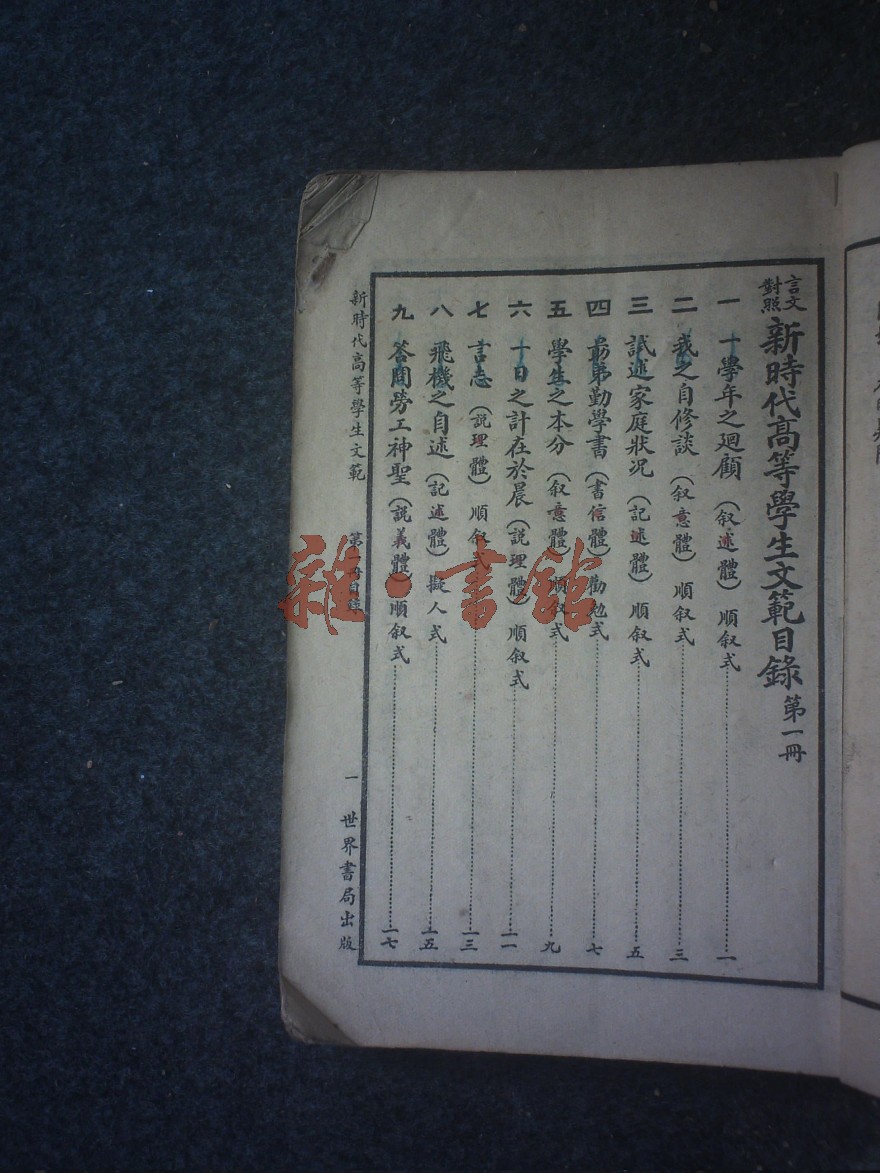 言文對照 新時代高等學生文範目錄 第一冊
一 一學年之廻顧(叙述體)順叙式……一
二 我之自修談(叙意體)順叙式……三
三 試述家庭狀況(記述體)順叙式……五
四 勗弟勤學書(書信體)勸勉式……七
五 學生之本分(叙意體)順叙式……九
六 一日之計在於晨(說理體)順叙式……一一
七 言志(說理體)順叙式……一三
八 飛機之自述(記述體)擬人式……一五
九 答問勞工神聖(說義體)順叙式……一七
新時代高等學生文範 第一冊目錄 一 世界書局出版
雜·書館